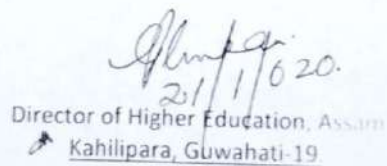 21/1/020.
Director of Higher Education, Assam
Kahilipara, Guwahati-19